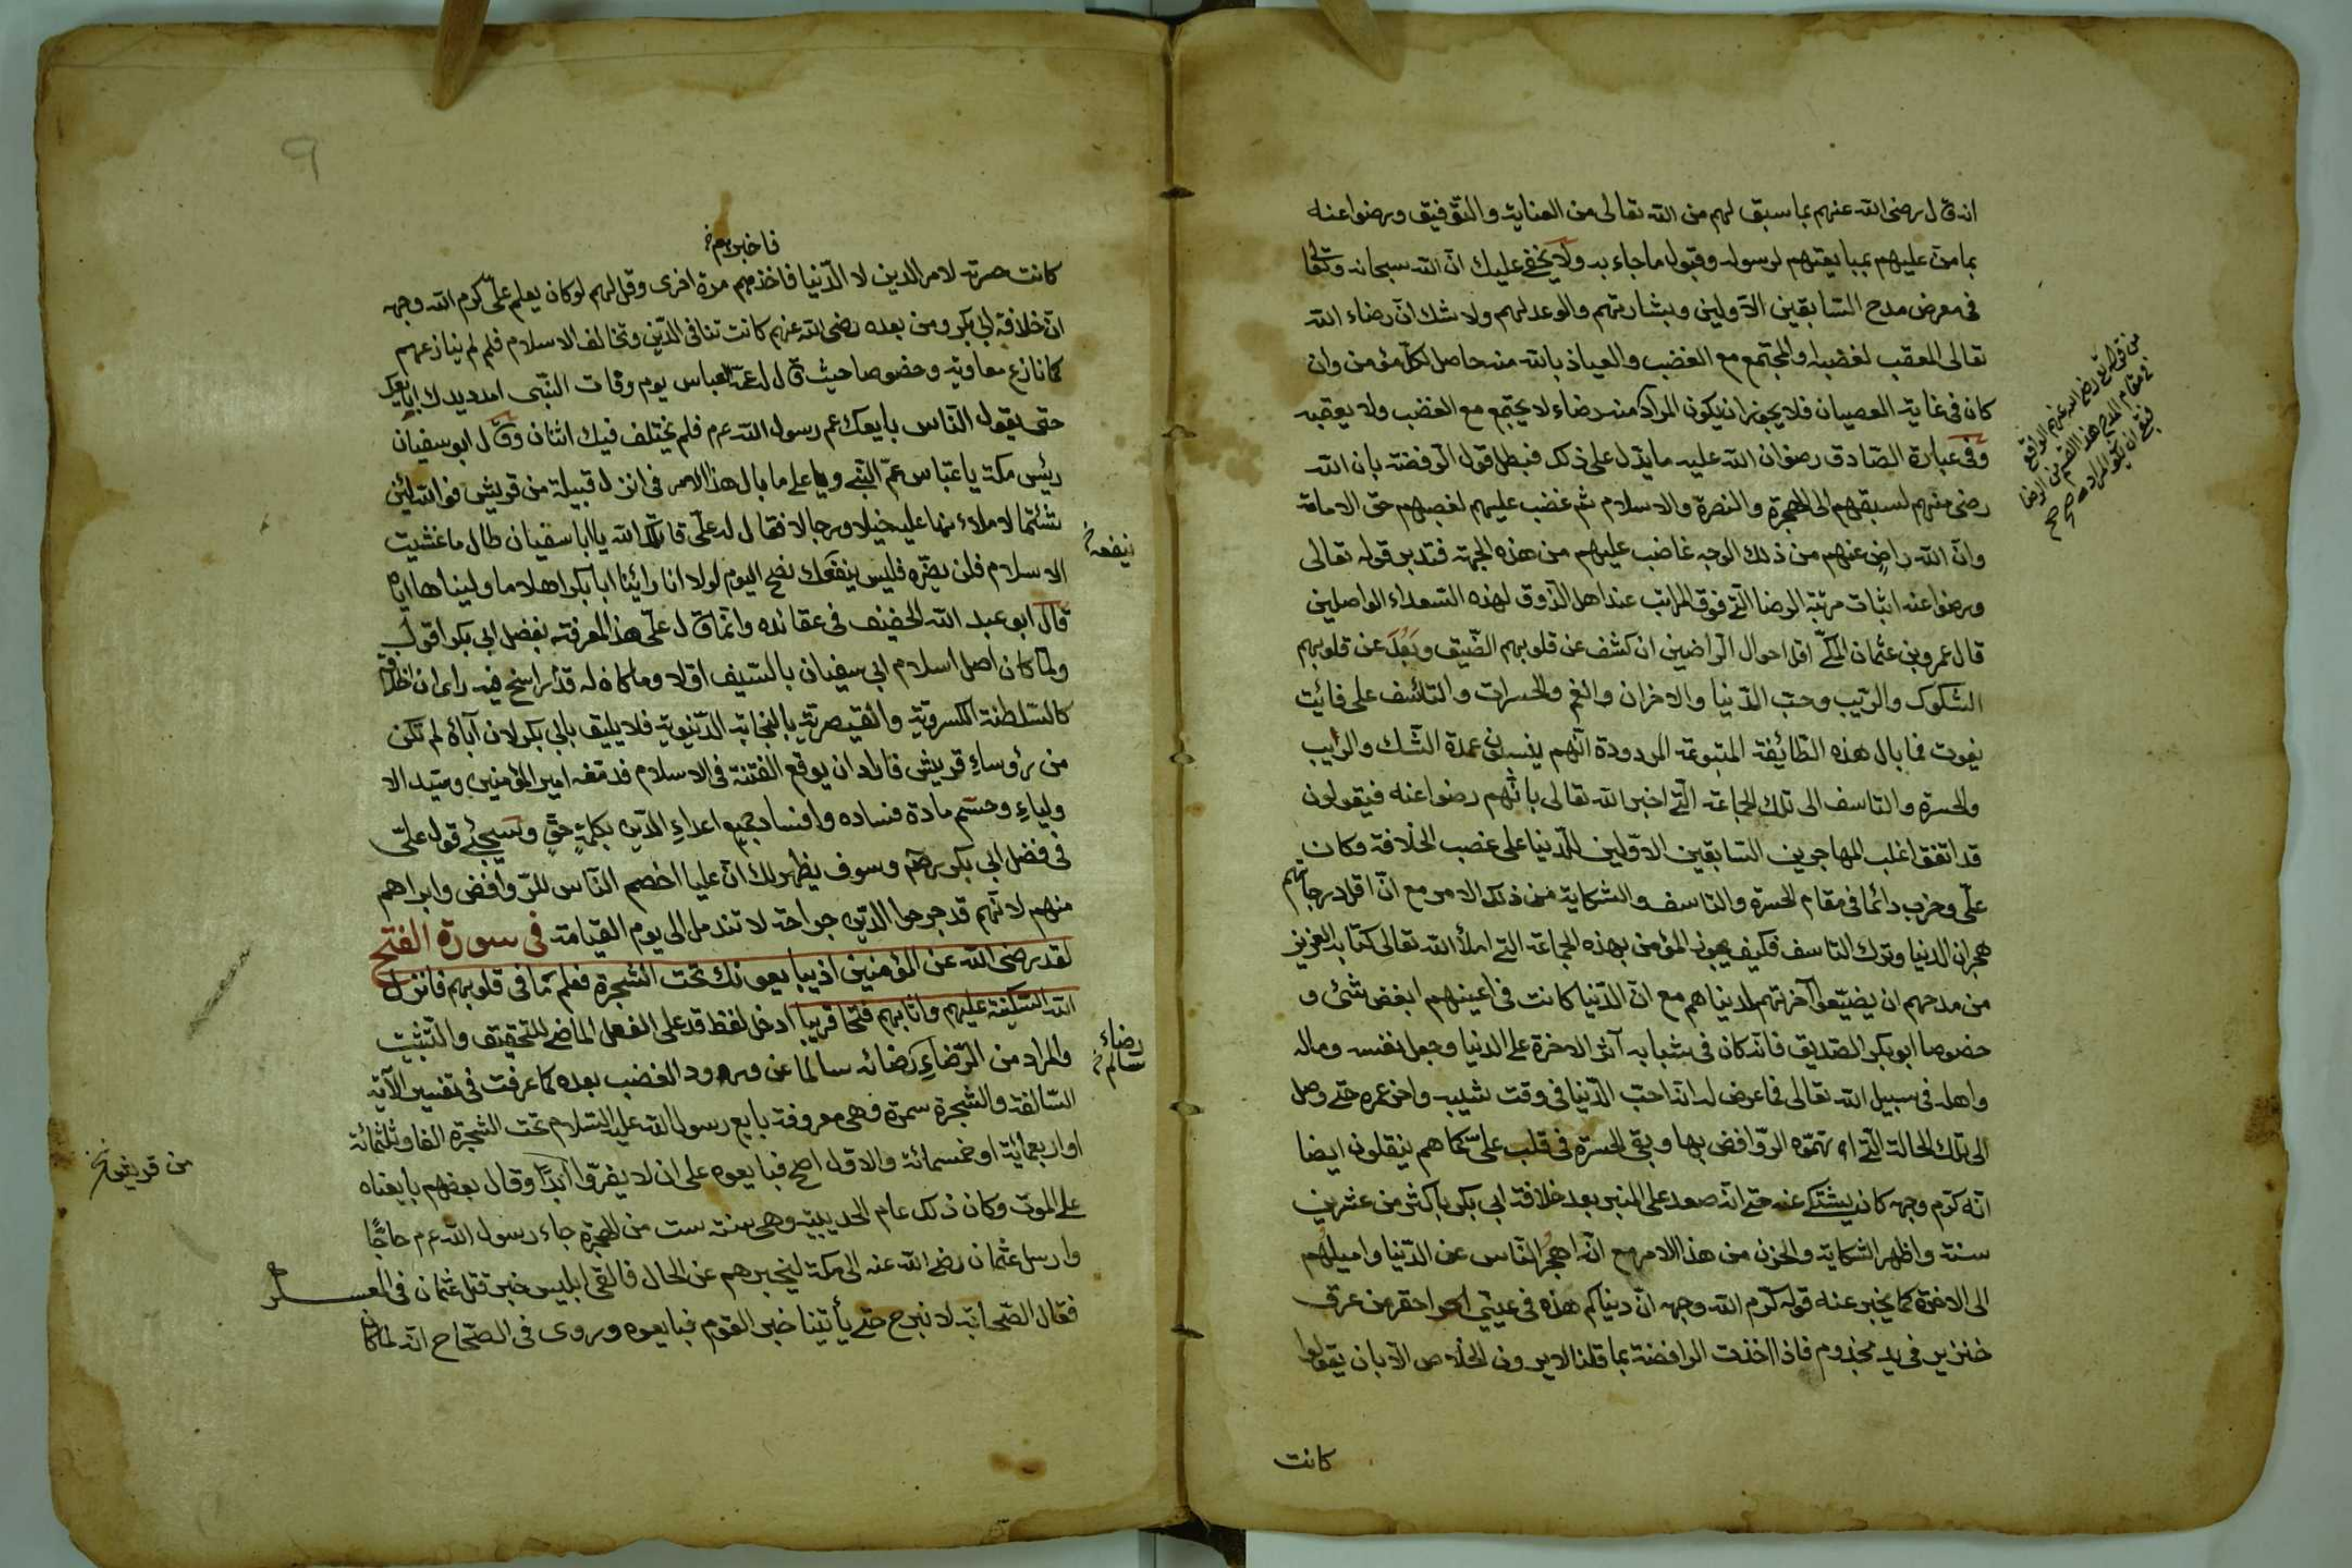 انه قال رضى الله عنهم بما سبق لهم من الله تعالى من العناية والتوفيق ورضوا عنه
بما منّ عليهم بمبايعتهم لرسوله وقبول ما جاء به ولا يخفى عليك انّ الله سبحانه وتعالى
فى معرض مدح السّابقين الاوّلين وبشارتهم والوعد لهم ولا شك انّ رضاء الله
تعالى المعقب لغضبه والمجتمع مع الغضب والعياذ بالله منه حاصل لكلّ مؤمن وان
كان فى غاية العصيان فلا يجوز ان يكون المراد منه رضاء لا يجتمع مع الغضب ولا يعقبه
وفى عبارة الصّادق رضوان الله عليه ما يدّل على ذلك فبطل قول الرّفضة بان الله
رضى منهم لسبقهم الى الهجرة والنصرة والاسلام ثم غضب عليهم لغصبهم حق الامامة
وانّ الله راضٍ عنهم من ذلك الوجه غاضب عليهم من هذه الجهة فتدبر قوله تعالى
ورضوا عنه اثبات مرتبة الرضا الّتى فوق المراتب عند اهل الذّوق لهذه السّعداء الواصلين
قال عمرو بن عثمان المكّى اقل احوال الرّاضين ان كشف عن قلوبهم الضّيق وبَعُدَ عن قلوبهم
الشكوك والرّيب وحبّ الدّنيا والاحزان والغم والحسرات والتأسّف على فائت
يفوت فما بال هذه الطّائفة المردودة انّهم ينسبون عمدة الشّك والرّيب
والحسرة والتاسف الى تلك الجماعة الّتى اخبر الله تعالى بانّهم رضوا عنه فيقولون
قد اتفق اغلب المهاجرين السّابقين الاوّلين للدّنيا على غصب الخلافة وكان
علىّ وحزبه دائما فى مقام الحسرة والتاسف والشكاية من ذلك الامر مع انّ اقل درجاتهم
هجران الدنيا وترك التاسف فكيف يجوز المؤمن بهذه الجماعة التى املأ الله تعالى كتابه العزيز
من مدحهم ان يضيّعوا آخرتهم لدنياهم مع انّ الدّنيا كانت فى اعينهم ابغض شئ و
خصوصا ابو بكر الصّديق فانّه كان فى شبابه آثر الاخرة على الدنيا وجعل نفسه وماله
واهله فى سبيل الله تعالى فما عرض له انّه احبّ الدّنيا فى وقت شيبه واخر عمره حتى وصل
الى تلك الحالة الّتى الرّوافض بها وبقى الحسرة فى قلب علىّ كما هم ينقلون ايضا
انّه كرّم وجهه كان يشتكى عنه حتى انّه صعد على المنبر بعد خلافة ابى بكر باكثر من عشرين
سنة واظهر الشكاية والحزن من هذا الامر مع انّه اهجر النّاس عن الدّنيا واميلهم
الى الاخرة كما يخبر عنه قوله كرّم الله وجهه انّ دنياكم هذه فى عينى احقر من عرق
خنزير فى يد مجذوم فاذا اخذت الرافضة بما قلنا لا يرون الخلاص الّا بان يقولوا
كانت
من قوله تع رضى الله عنهم الواقع
فى مقام المدح هذا القسم من الرضا
صح
فاخبرهم
كانت حسرته لامر الدين لا الدّنيا فاخذهم مرة اخرى وقل لهم لو كان يعلم علىّ كرم الله وجهه
انّ خلافة ابى بكر ومن بعده رضى الله عنهم كانت تنافى الدّين وتخالف الاسلام فلم لم ينازعهم
كما نازع معاوية وخصوصا حيث قال له عمّه العباس يوم وفات النّبى امدد يدك ابايعك
حتى يقول النّاس بايعك عم رسول الله عم فلم يختلف فيك اثنان وقال ابو سفيان
رئيس مكة يا عبّاس عمّ النّبى ويا على ما بال هذا الامر فى انزل قبيلة من قريش فوالله لئن
شئتما لاملاءنها عليه خيلا ورجالا فقال له علىّ قاتلك الله يا ابا سفيان طال ما غششت
الاسلام فلن يضّره فليس ينفعك نصح اليوم لولا انا رائينا ابا بكر اهلا ما وليناها ايّاه
قال ابو عبد الله الخفيف فى عقائده وانّما قال علىّ هذا لمعرفته بفضل ابى بكر اقول
ولمّا كان اصل اسلام ابى سفيان بالسّيف اوّلا وما كان له قدم راسخ فيه راى ان الخلافة
كالسّلطنة الكسروية والقيصرية بالنجابة الدّنيوية فلا يليق بابى بكر لان آباءه لم تكن
من رؤساءِ قريش فاراد ان يوقع الفتنة فى الاسلام فدمغه امير المؤمنين وسيّد الا
ولياءِ وحسم مادة فساده وافساد جميع اعداءِ الدّين بكلمةٍ حقٍ وسيجئ قول علىّ
فى فضل ابى بكر وسوف يظهر لك انّ عليا اخصم النّاس للرّوافض وابراهم
منهم لانّهم قد جرحوا الدّين جراحة لا تندمل الى يوم القيامة فى سورة الفتح
لقد رضى الله عن المؤمنين اذ يبايعونك تحت الشّجرة فعلم ما فى قلوبهم فانزل
الله السّكينة عليهم واثابهم فتحا قريبا ادخل لفظ قد على الفعل الماضى للتّحقيق والتّثبيت
والمراد من الرّضاءِ رضائه سالما عن ورود الغضب بعده كما عرفت فى تفسير الآية
السّالفة والشّجرة سمرة وهى معروفة بايع رسول الله عليه السّلام تحت الشجرة الفا وثلثمائة
او اربعمائة او خمسمائة والاوّل اصح فبايعوه على ان لا يفرّوا ابدًا وقال بعضهم بايعناه
على الموت وكان ذلك عام الحديبية وهى سنة ست من الهجرة جاء رسول الله عم حاجًا
وارسل عثمان رضى الله عنه الى مكة ليخبرهم عن الحال فالقى ابليس خبر قتل عثمان فى العسكر
فقال الصّحابة لا نبرح حتى يأتينا خبر القوم فبايعوه وروى فى الصّحاح انّه لما كان
رضاء
سالم
من قريش
٩